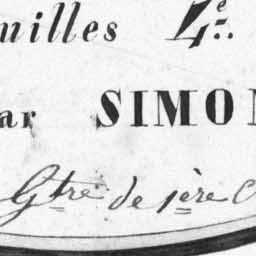 milles 4e.
ar SIMON
Gtre de 1ère C